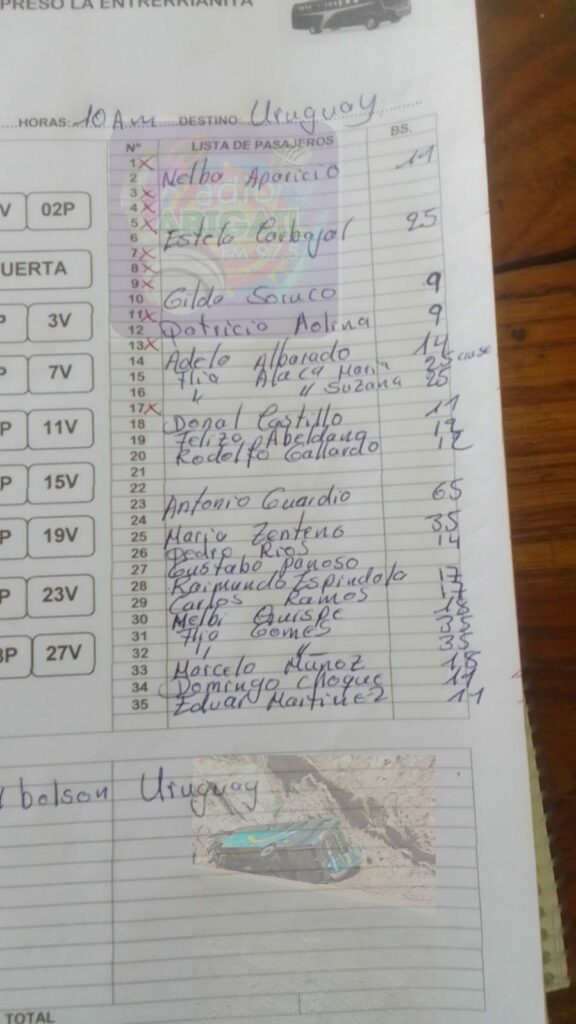 PRESO LA ENTRERRIANITA
HORAS: 10 Am DESTINO: Uruguay
Nº LISTA DE PASAJEROS BS.
1 x
2 Nelba Aparicio 11
3 x
4 x
5 x
6 Estela Carbajal 25
7 x
8 x
9 x
10 Gilda Soruco 9
11 x
12 Patricio Molina 9
13 x
14 Adela Albarado 14
15 Flia Alaca Maria 25
16 " " Suzana 25
17 x
18 Donal Castillo 11
19 Feliza Abeldana 12
20 Rodolfo Gallardo 12
21
22
23 Antonio Guardio 65
24
25 Maria Zenteno 35
26 Pedro Rios 14
27 Gustabo Panoso
28 Raimundo Espindola 17
29 Carlos Ramos 17
30 Melbi Quispe 18
31 Flia Gomes 35
32 " " 35
33 Marcelo Muñoz 18
34 Domingo choque 11
35 Eduar Martinez 11
V 02P
UERTA
P 3V
P 7V
P 11V
P 15V
P 19V
P 23V
3P 27V
radio
ARIGATU
FM 97.5
bolson Uruguay
TOTAL